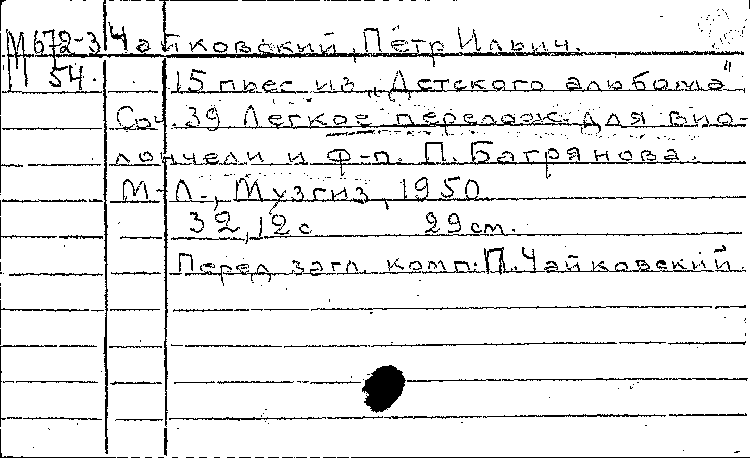 М672-3 Чайковский, Пётр Ильич.
54. 15 пьес из „Детского альбома"
Соч. 39 Легкое перелож. для вио-
лончели и ф-п. П. Багрянова.
М-Л., Музгиз, 1950
32, 12 с 29 см.
Перед загл. комп: П. Чайковский.